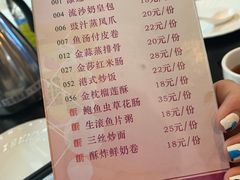 004 流沙奶皇包 18元/份
006 豉汁蒸凤爪 20元/份
007 鱼汤付皮卷 22元/份
012 金蒜蒸排骨 22元/份
027 金莎红米肠 28元/份
052 港式炒饭 22元/份
056 金枕榴莲酥 18元/份
鲍鱼虫草花肠 35元/份
生滚鱼片粥 18元/份
三丝炒面 28元/份
酥炸鲜奶卷 18元/份